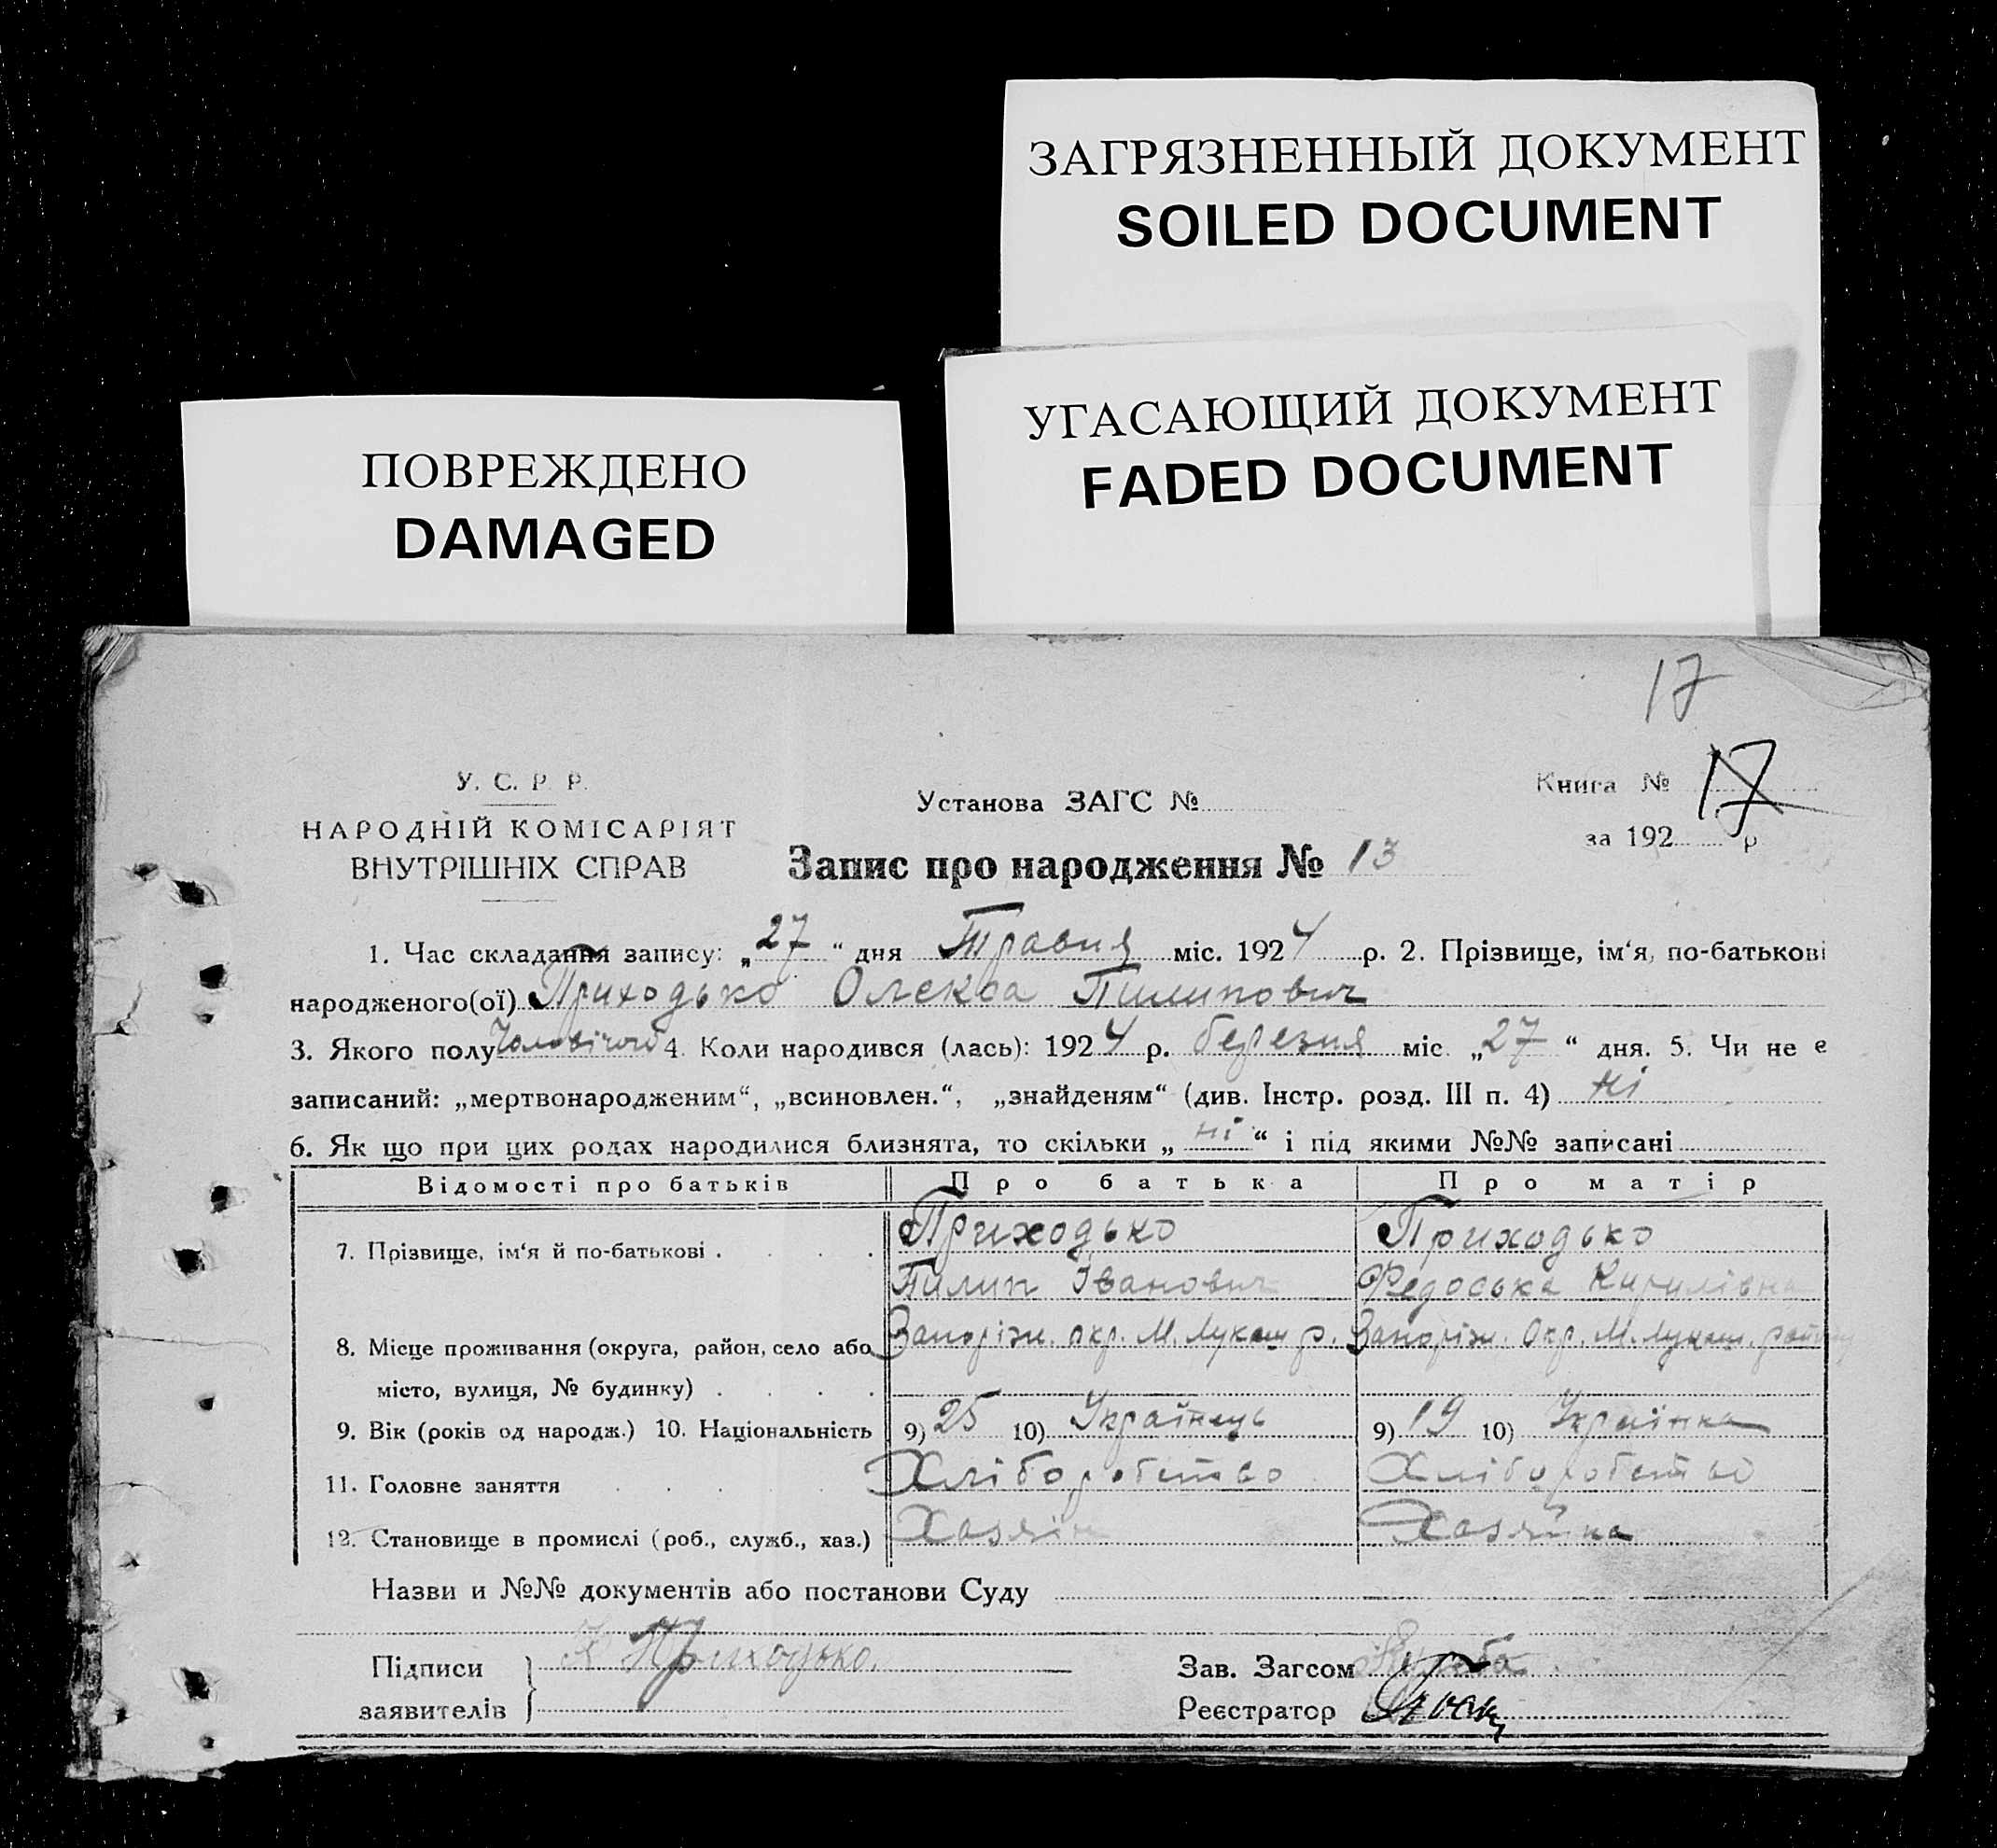 ЗАГРЯЗНЕННЫЙ ДОКУМЕНТ
SOILED DOCUMENT
УГАСАЮЩИЙ ДОКУМЕНТ
FADED DOCUMENT
ПОВРЕЖДЕНО
DAMAGED
17
У. С. Р. Р.
НАРОДНІЙ КОМІСАРІЯТ
ВНУТРІШНІХ СПРАВ
Установа ЗАГС №
Книга № 17
за 192 р
Запис про народження № 13
1. Час складання запису: „27“ дня Травня міс. 1924 р. 2. Прізвище, ім‘я, по-батькові
народженого(ої) Приходько Олекса Пилипович
3. Якого полу Чоловічого 4. Коли народився (лась): 1924 р. березня міс. „27“ дня. 5. Чи не є
записаний: „мертвонародженим“, „всиновлен.“, „знайденям“ (див. Інстр. розд. III п. 4) ні
6. Як що при цих родах народилися близнята, то скільки „ні“ і під якими №№ записані
Відомості про батьків Про батька Про матір
7. Прізвище, ім‘я й по-батькові . . . . Приходько Приходько
Пилип Іванович Федоська Кирилівна
8. Місце проживання (округа, район, село або Запоріж. окр. М. Лукаш р. Запоріж. Окр. М. Лукаш. району
місто, вулиця, № будинку) . . . .
9. Вік (років од народж.) 10. Національність 9) 25 10) Українець 9) 19 10) Українка
11. Головне заняття . . . . Хліборобство Хліборобство
12. Становище в промислі (роб., служб., хаз.) Хазяїн Хазяйка
Назви и №№ документів або постанови Суду
Підписи Приходько. Зав. Загсом
заявителів Реєстратор